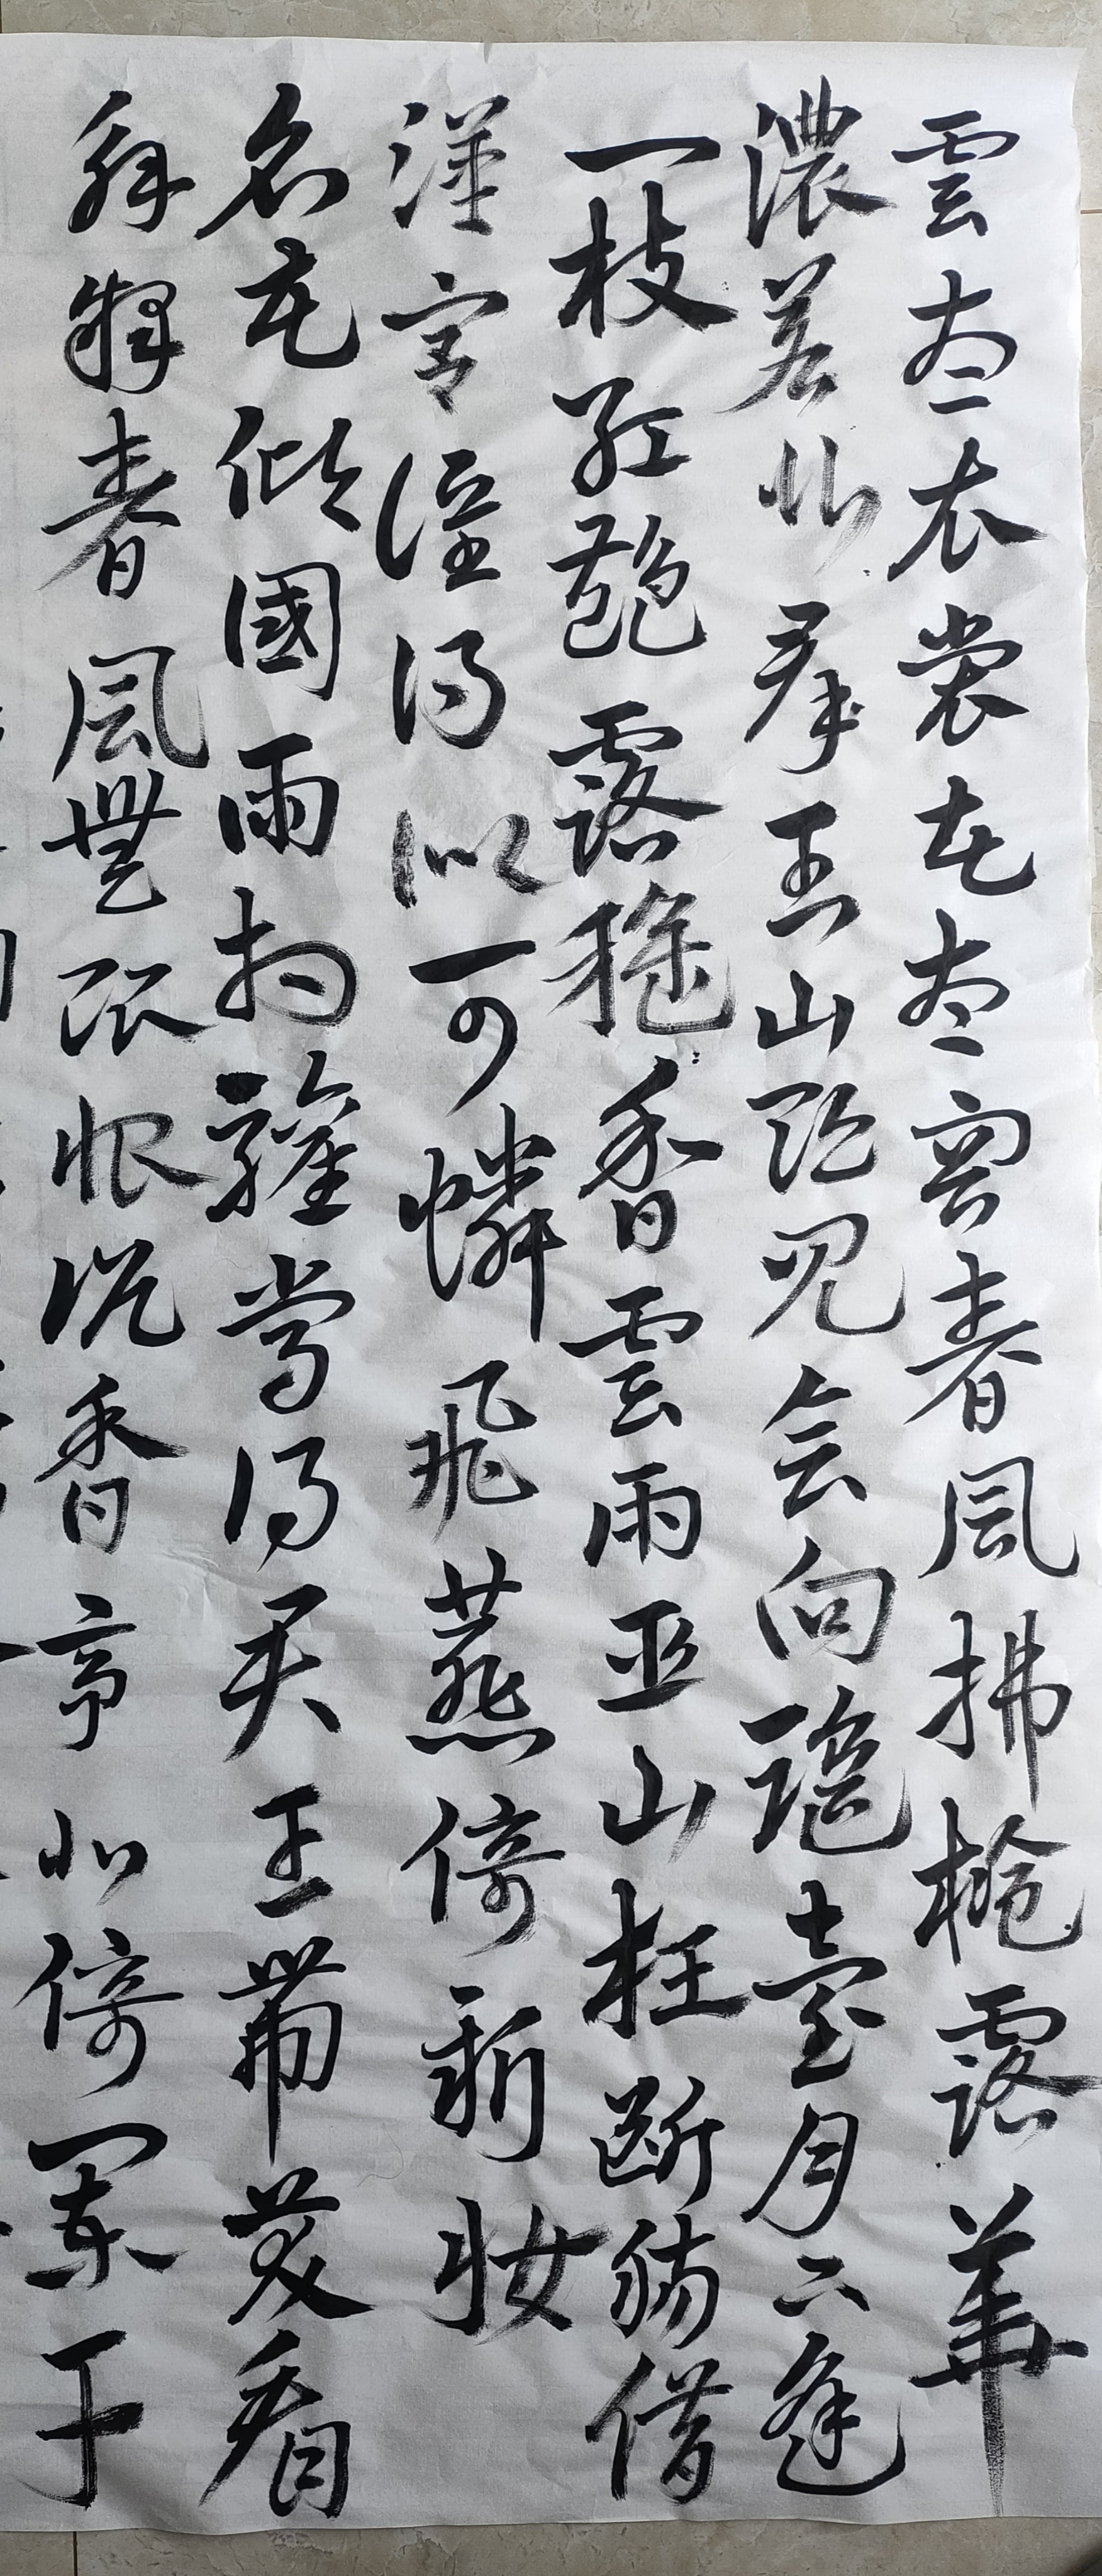 雲想衣裳花想容春風拂檻露華
濃若非群玉山頭見会向瑤臺月下逢
一枝紅艷露凝香雲雨巫山枉斷腸借
漢宮誰得似可憐飛燕倚新妝
名花傾國兩相歡常得君王帶笑看
解釋春風無限恨沉香亭北倚闌干